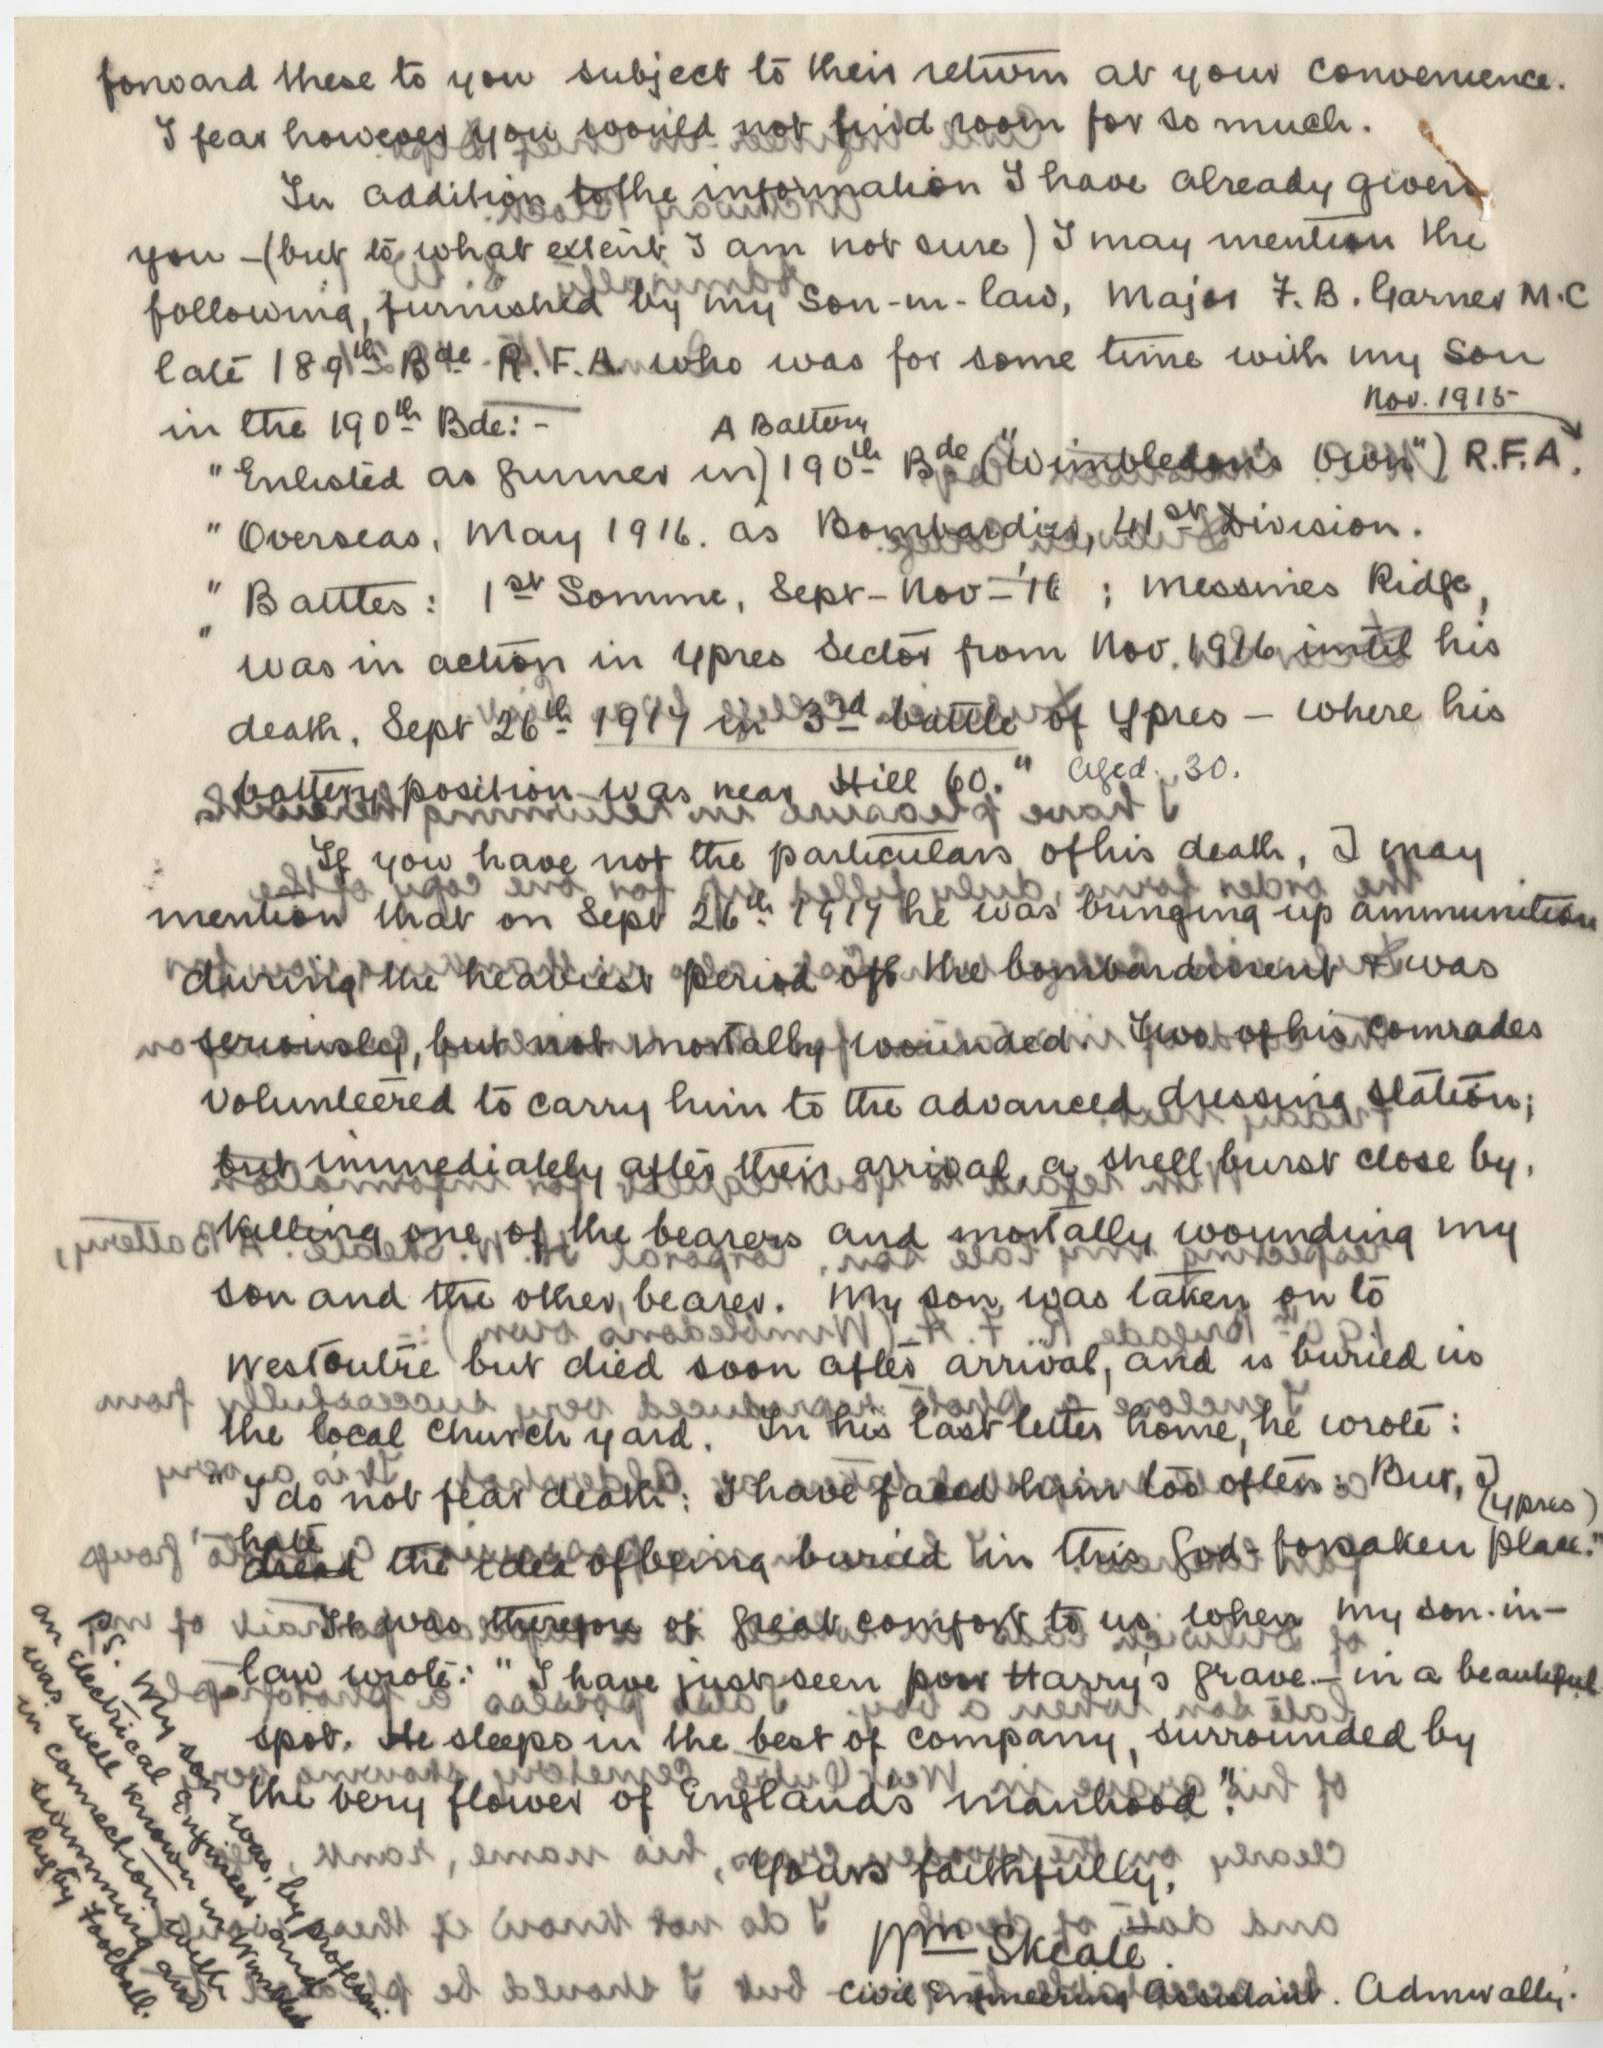 forward these to you subject to their return at your convenience.
I fear however you would not find room for so much.
In addition to the information I have already given
you - (but to what extent I am not sure) I may mention the
following, furnished by my Son-in-law, Major F. B. Garner M.C
late 189th Bde R.F.A. who was for some time with my Son
in the 190th Bde: -
Nov. 1915
A Battery
"Enlisted as Gunner in) 190th Bde ("Wimbledon's Own") R.F.A.
" Overseas, May 1916. as Bombardier, 41st Division.
" Battles: 1st Somme, Sept - Nov - '16 ; Messines Ridge,
" was in action in Ypres Sector from Nov. 1916 until his
death, Sept 26th 1917 in 3rd battle of Ypres - where his
battery position was near Hill 60." aged 30.
If you have not the particulars of his death, I may
mention that on Sept 26th 1917 he was bringing up ammunition
during the heaviest period of the bombardment & was
seriously, but not mortally wounded. Two of his comrades
volunteered to carry him to the advanced dressing station;
but immediately after their arrival a shell burst close by,
killing one of the bearers and mortally wounding my
son and the other bearer. My son was taken on to
Westoutre but died soon after arrival, and is buried in
the local churchyard. In his last letter home, he wrote:
"I do not fear death: I have faced him too often: But, I
(Ypres)
hate
dread the idea of being buried in this God-forsaken place."
It was therefore of great comfort to us when my son-in-
law wrote: "I have just seen poor Harry's grave - in a beautiful
spot. He sleeps in the best of company, surrounded by
the very flower of England's manhood".
Yours faithfully,
Wm Skeate.
Civil Engineering Assistant. Admiralty.
P.S. My son was, by profession
an electrical engineer and
was well known in Wimbledon
in connection with
swimming and
Rugby Football.